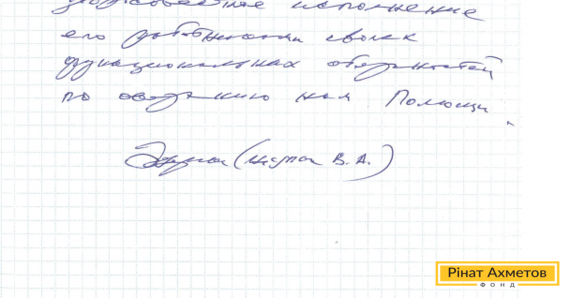 исполнение
его работниками своих
функциональных обязанностей
по оказанию нам Помощи
В. А.)
Рінат Ахметов
ФОНД